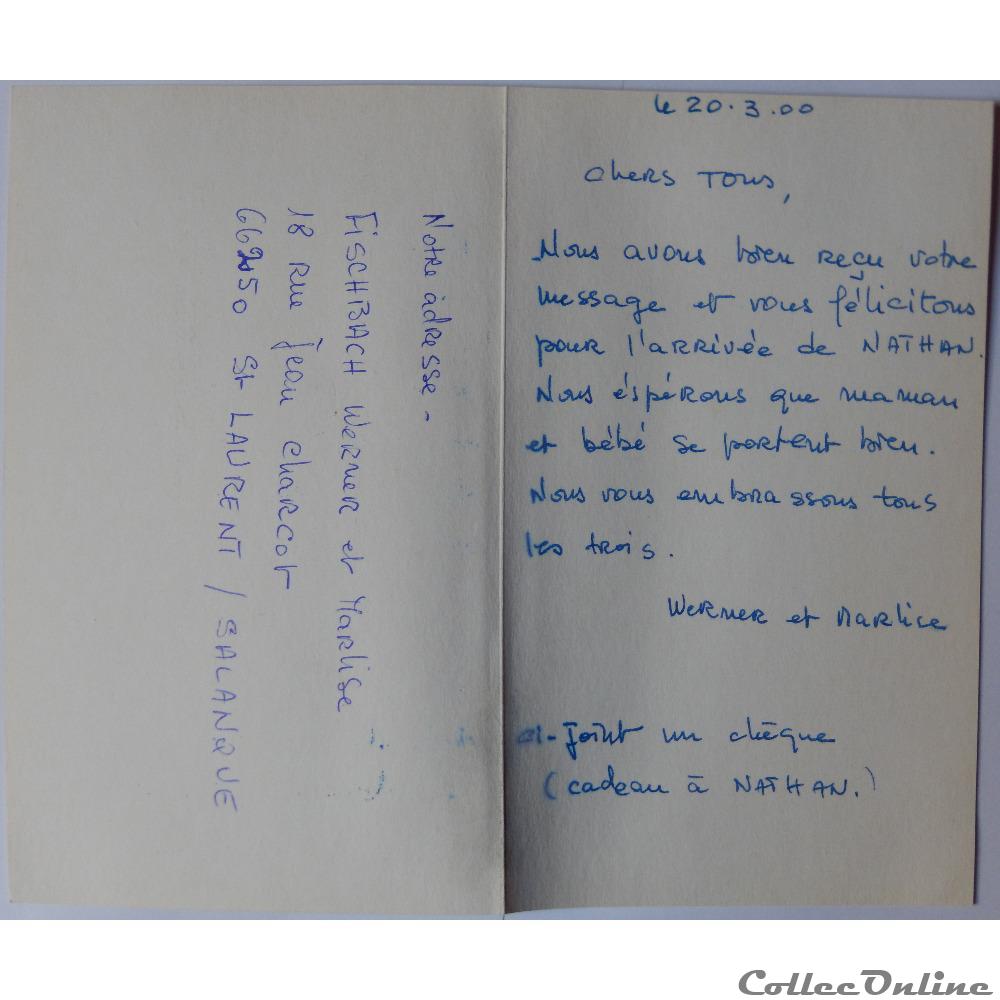 Notre àdresse -
FiSCHBACH Werner et Marlise
18 Rue Jean Charcot
66250 St LAURENT / SALANQUE
le 20.3.00
Chers Tous,
Nous avons bien reçu votre
message et vous félicitons
pour l'arrivée de NATHAN.
Nous éspérons que maman
et bébé se portent bien.
Nous vous embrassons tous
les trois.
Werner et Marlice
ci-joint un chèque
(cadeau à NATHAN.)
CollecOnline